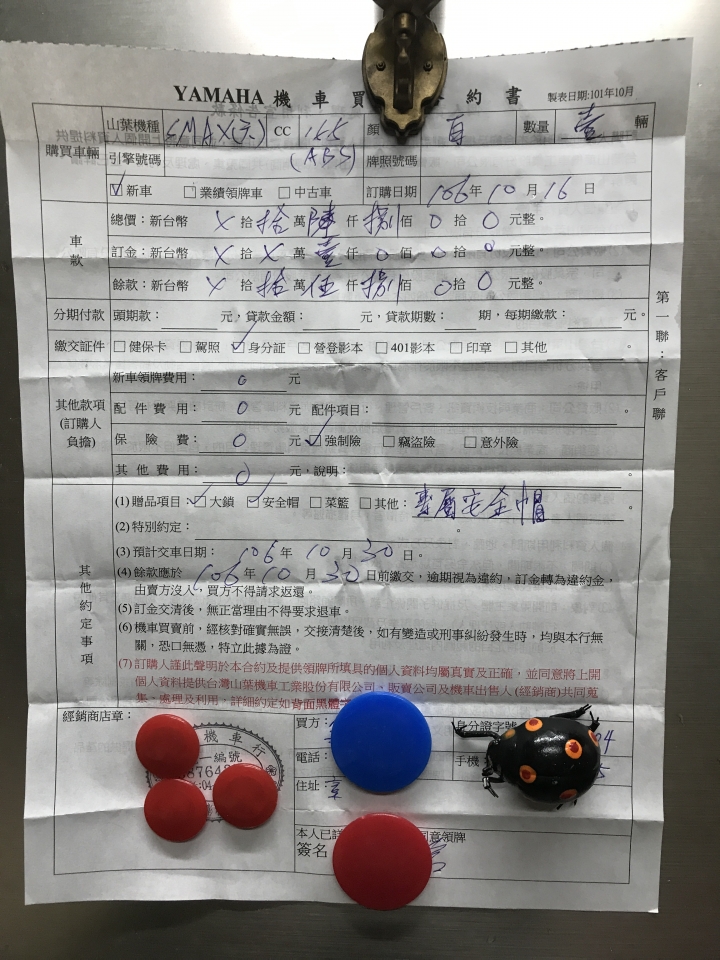 YAMAHA 機車買 約書 製表日期:101年10月
購買車輛
山葉機種 SMAX(六) CC 155 顏 白 數量 壹 輛
引擎號碼 (ABS) 牌照號碼
☑新車 □業績領牌車 □中古車 訂購日期 106年10月16日
車款
總價：新台幣 X 拾 拾 萬 陸 仟 捌 佰 0 拾 0 元整。
訂金：新台幣 X 拾 X 萬 壹 仟 0 佰 0 拾 0 元整。
餘款：新台幣 X 拾 拾 萬 伍 仟 捌 佰 0 拾 0 元整。
分期付款 頭期款：元，貸款金額：元，貸款期數：期，每期繳款：元。
繳交証件 □健保卡 □駕照 ☑身分証 □營登影本 □401影本 □印章 □其他 。
其他款項
(訂購人
負擔)
新車領牌費用：0 元
配件費用：0 元 配件項目： 。
保險費：0 元 ☑強制險 □竊盜險 □意外險
其他費用：0 元，說明： 。
其他約定事項
(1) 贈品項目：☑大鎖 ☑安全帽 □菜籃 □其他：專屬安全帽 。
(2) 特別約定： 。
(3) 預計交車日期：106年10月30日。
(4) 餘款應於106年10月30日前繳交，逾期視為違約，訂金轉為違約金，
由賣方沒入，買方不得請求返還。
(5) 訂金交清後，無正當理由不得要求退車。
(6) 機車買賣前，經核對確實無誤，交接清楚後，如有變造或刑事糾紛發生時，均與本行無
關，恐口無憑，特立此據為證。
(7) 訂購人謹此聲明於本合約及提供領牌所填具的個人資料均屬真實及正確，並同意將上開
個人資料提供台灣山葉機車工業股份有限公司、販賣公司及機車出售人(經銷商)共同蒐
集、處理及利用，詳細約定如背面黑體
第一聯：客戶聯
經銷商店章：
機車行
編號
買方： 身分證字號
電話： 手機
住址：
本人已詳 同意領牌
簽名